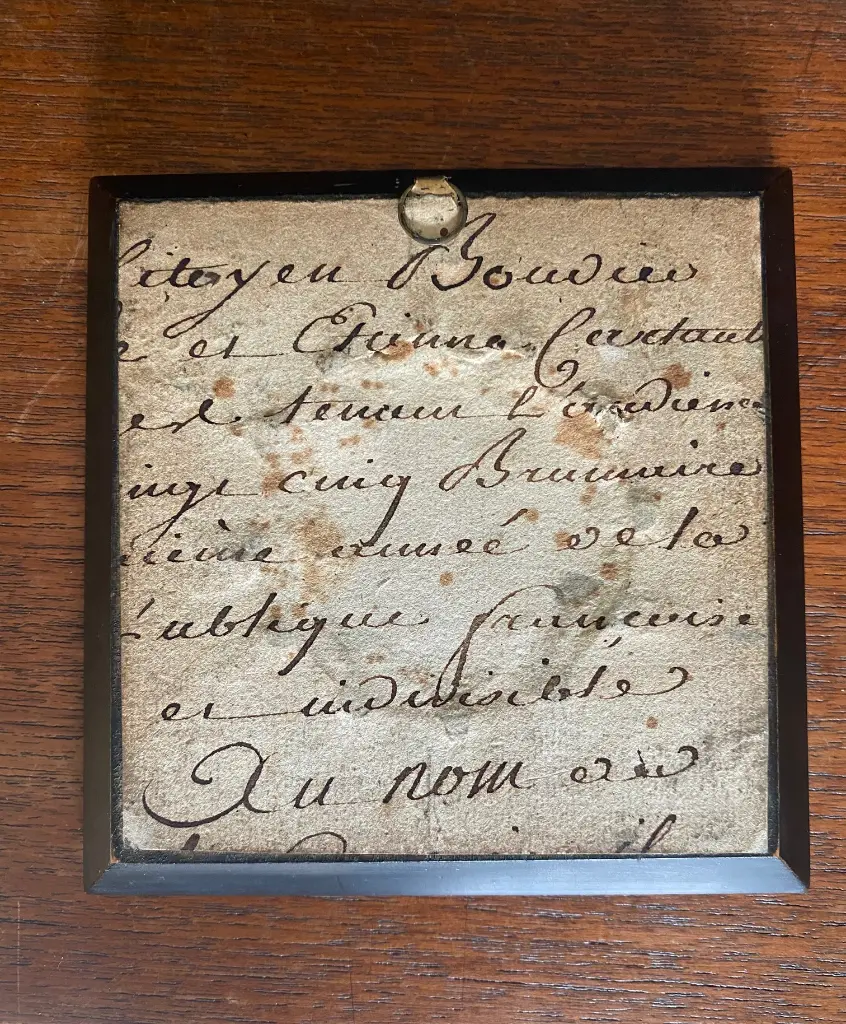 Citoyen Boudier
et Etienne Cartault
et tenant L'audience
ingt cinq Brumaire
ième année de la
ublique françoise
et indivisible
Au nom du